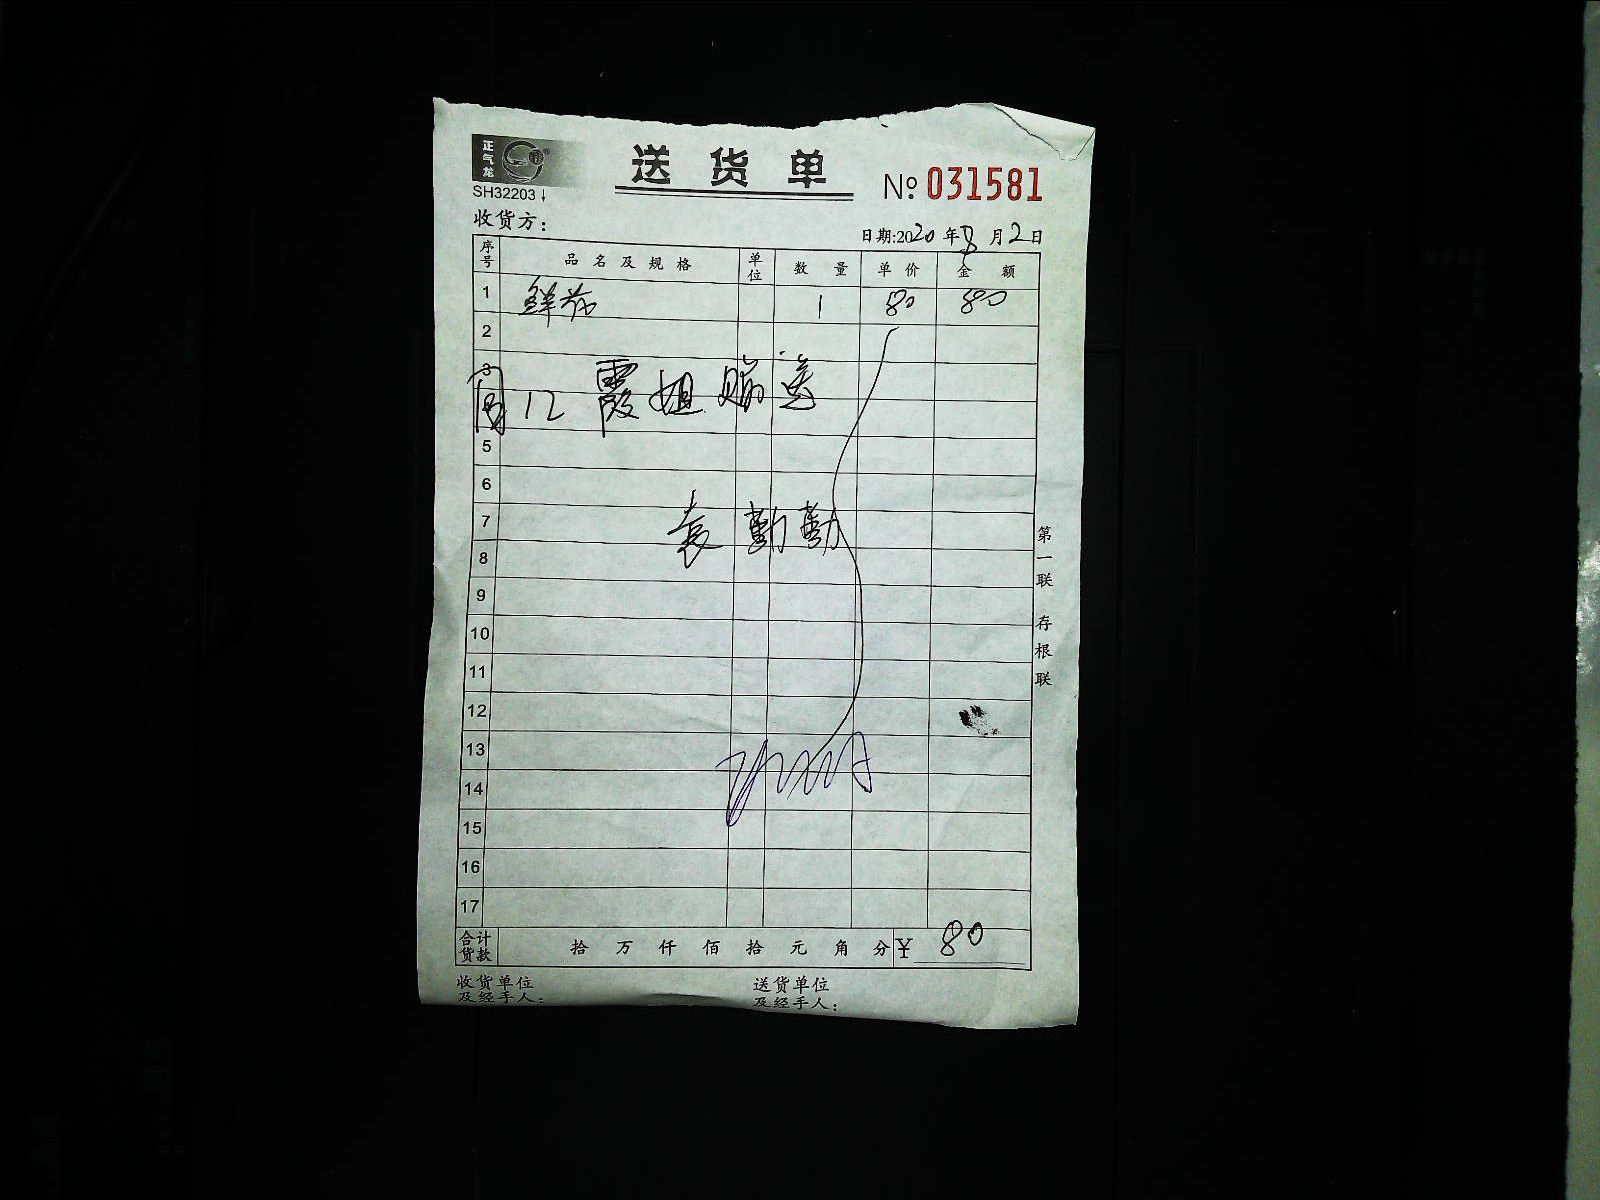 正气龙
送货单
SH32203
№ 031581
收货方：
日期:2020年8月2日
序号 品名及规格 单位 数量 单价 金额
1 鲜花 1 80 80
2
3
12 霞姐 赠送
5
6
7 袁勤勤
8
9
10
11
12
13
14
15
16
17
合计货款 拾 万 仟 佰 拾 元 角 分 ¥ 80
收货单位及经手人：
送货单位及经手人：
第一联 存根联